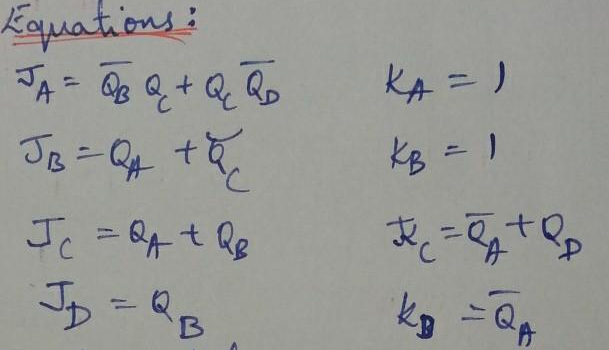 Equations:
J_A = Q̅_B Q_C + Q_C Q̅_D K_A = 1
J_B = Q_A + Q̅_C K_B = 1
J_C = Q_A + Q_B K_C = Q̅_A + Q_D
J_D = Q_B K_D = Q̅_A